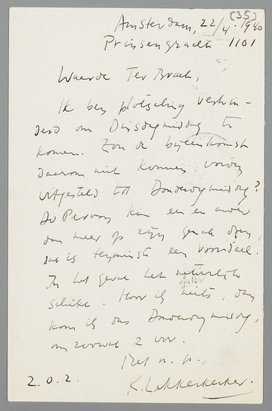 (35)
Amsterdam, 22/4 1940
Prinsengracht 1101
Waarde Ter Braak,
Ik ben plotseling verhin-
derd om Dinsdagmiddag te
komen. Zou de bijeenkomst
daarom niet kunnen worden
uitgesteld tot Donderdagmiddag?
Du Perron kan een en ander
dan meer op zijn gemak doen,
dat is tenminste een voordeel.
In het geval het natuurlijk
schikt. Hoor ik niets, dan
kom ik dus Donderdagmiddag,
om 2 uur.
Met
K. Lekkerkerker.
2.0.2.